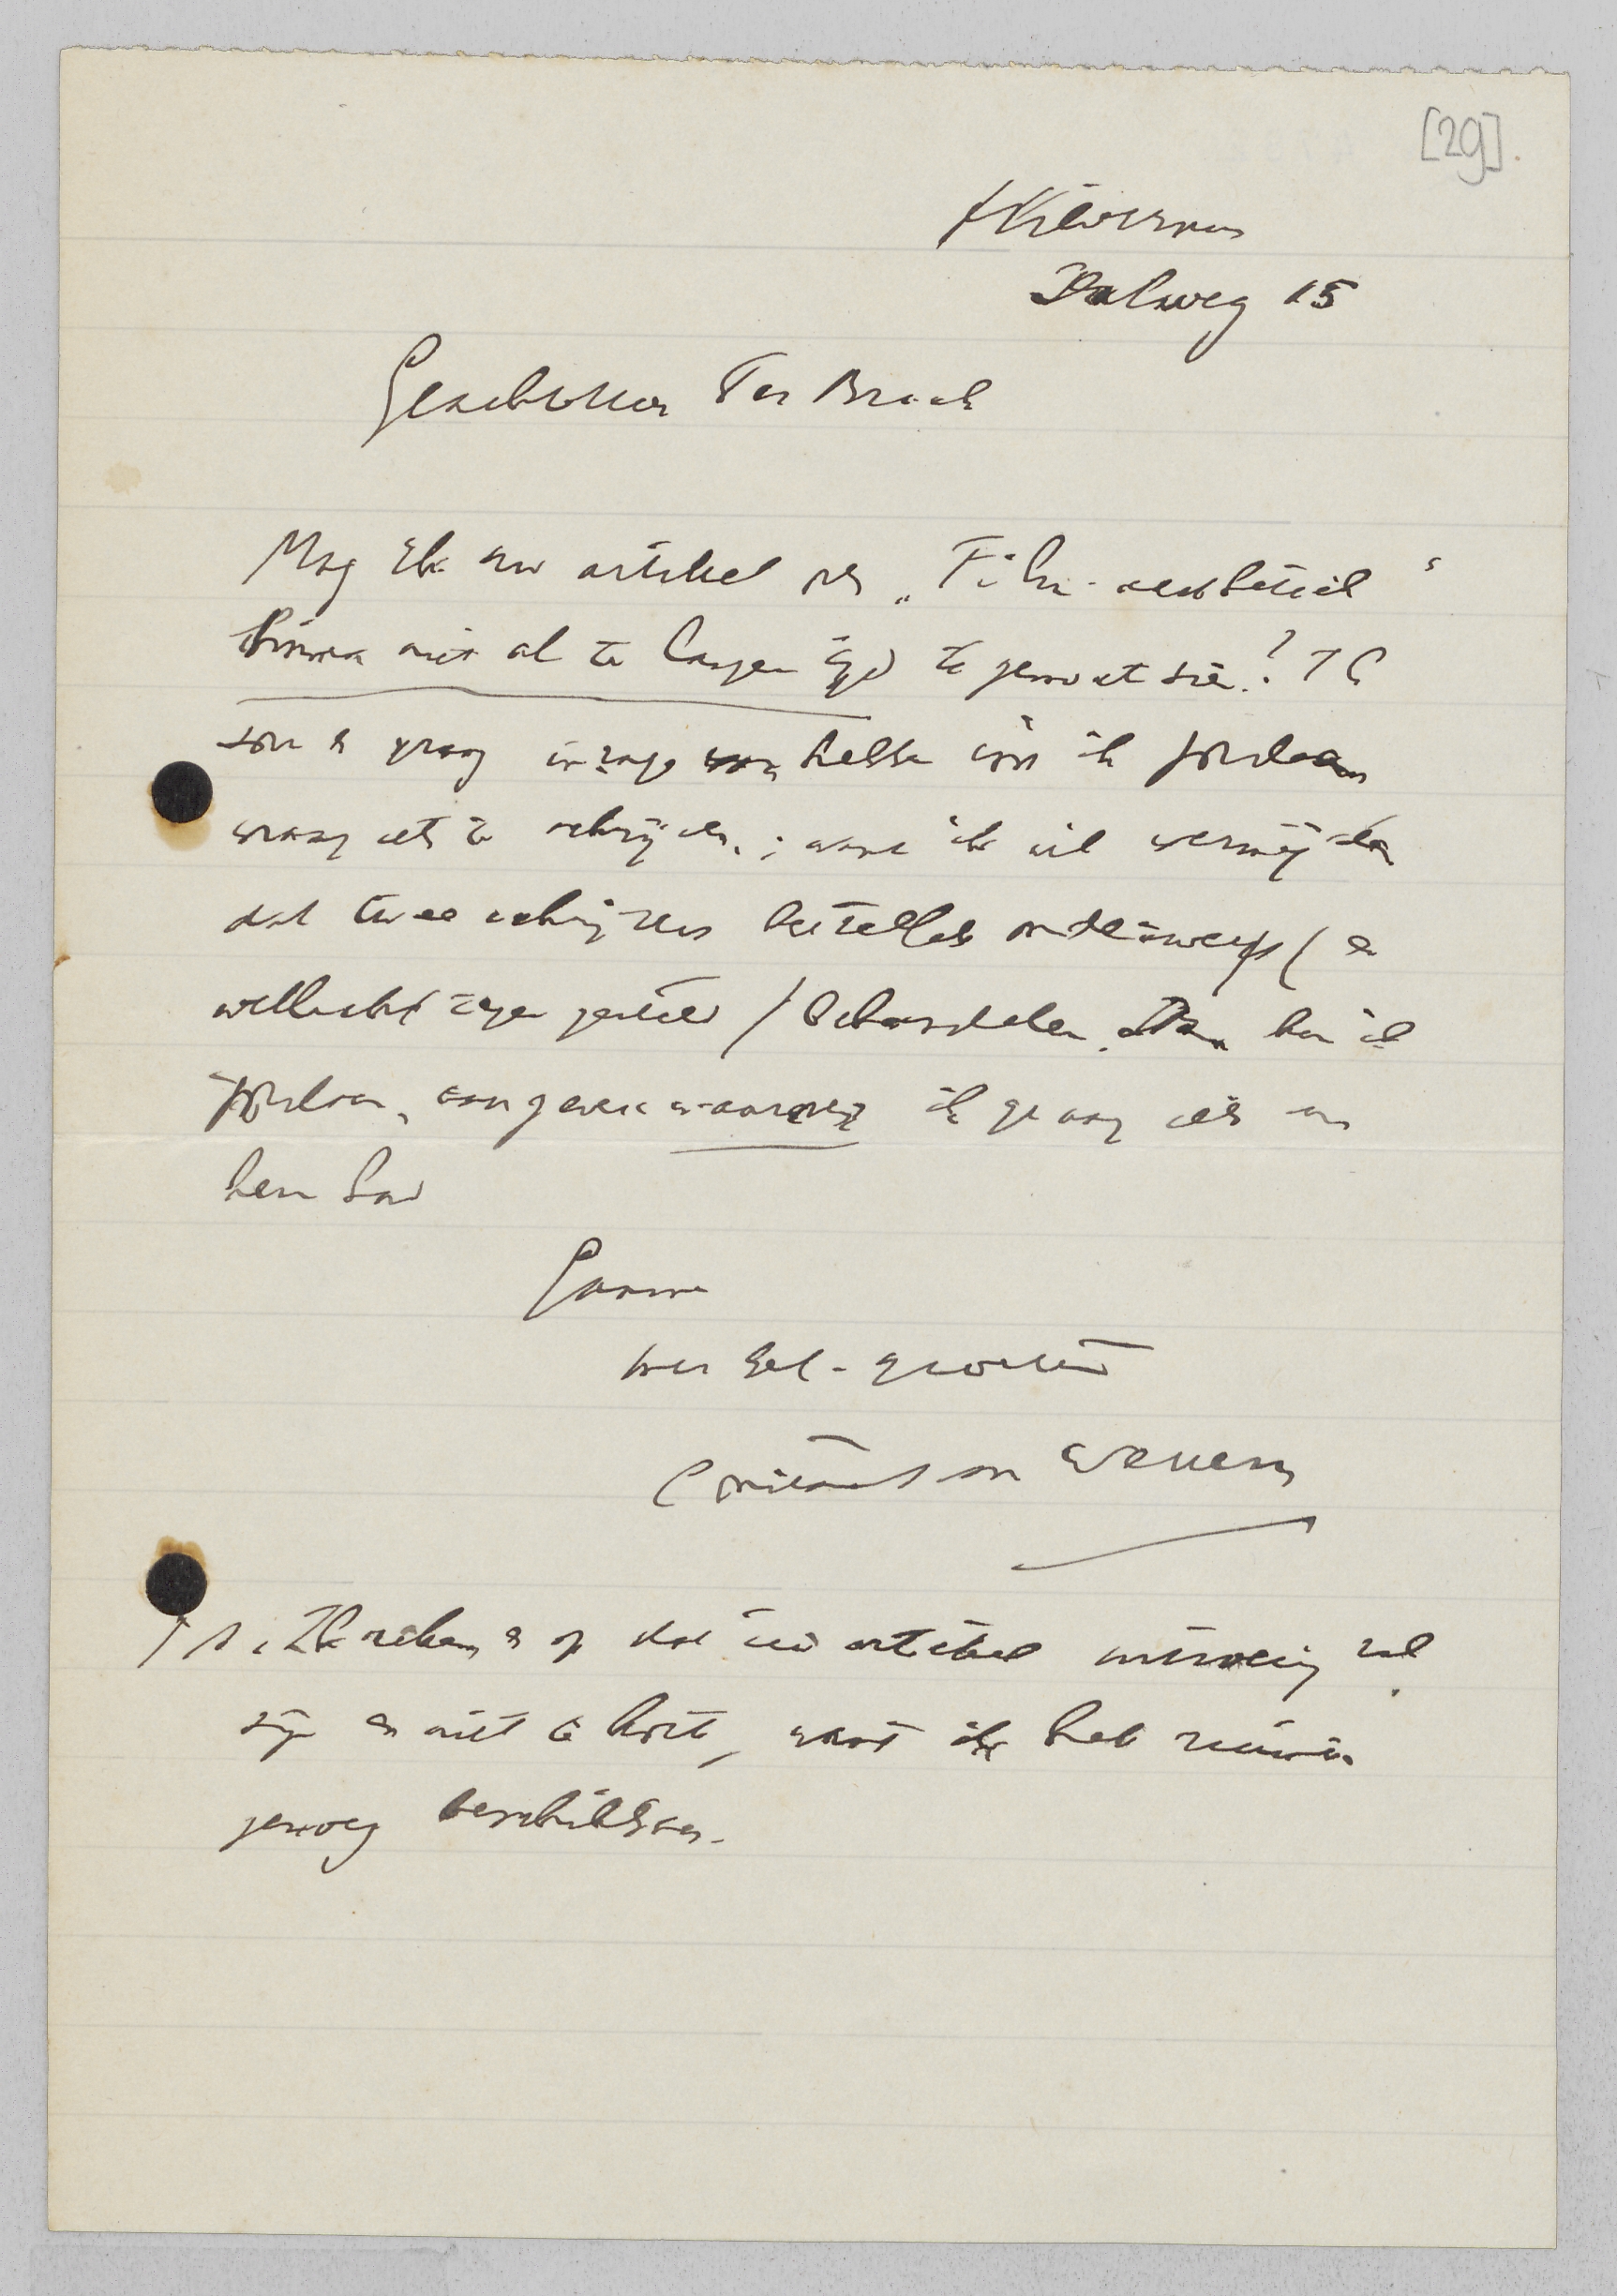 [29].
Hilversum
Dalweg 15
Geachte Heer Ter Braak
Mag ik uw artikel over „Film-aesthetiek"
binnen niet al te langen tijd te gemoet zien? Ik
zou er graag inzage van hebben voor ik Jordaan
vraag iets te schrijven; want ik wil vermijden
dat twee schrijvers hetzelfde onderwerp (en
wellicht tegengesteld) behandelen. Dan kan ik
Jordaan aangeven waarover ik graag iets van
hem had
Gaarne
met gel- groeten
Constant van Wessem
P S. Ik reken er op dat uw artikel uitvoerig zal
zijn en niet te kort, want ik heb ruimte
genoeg beschikbaar.